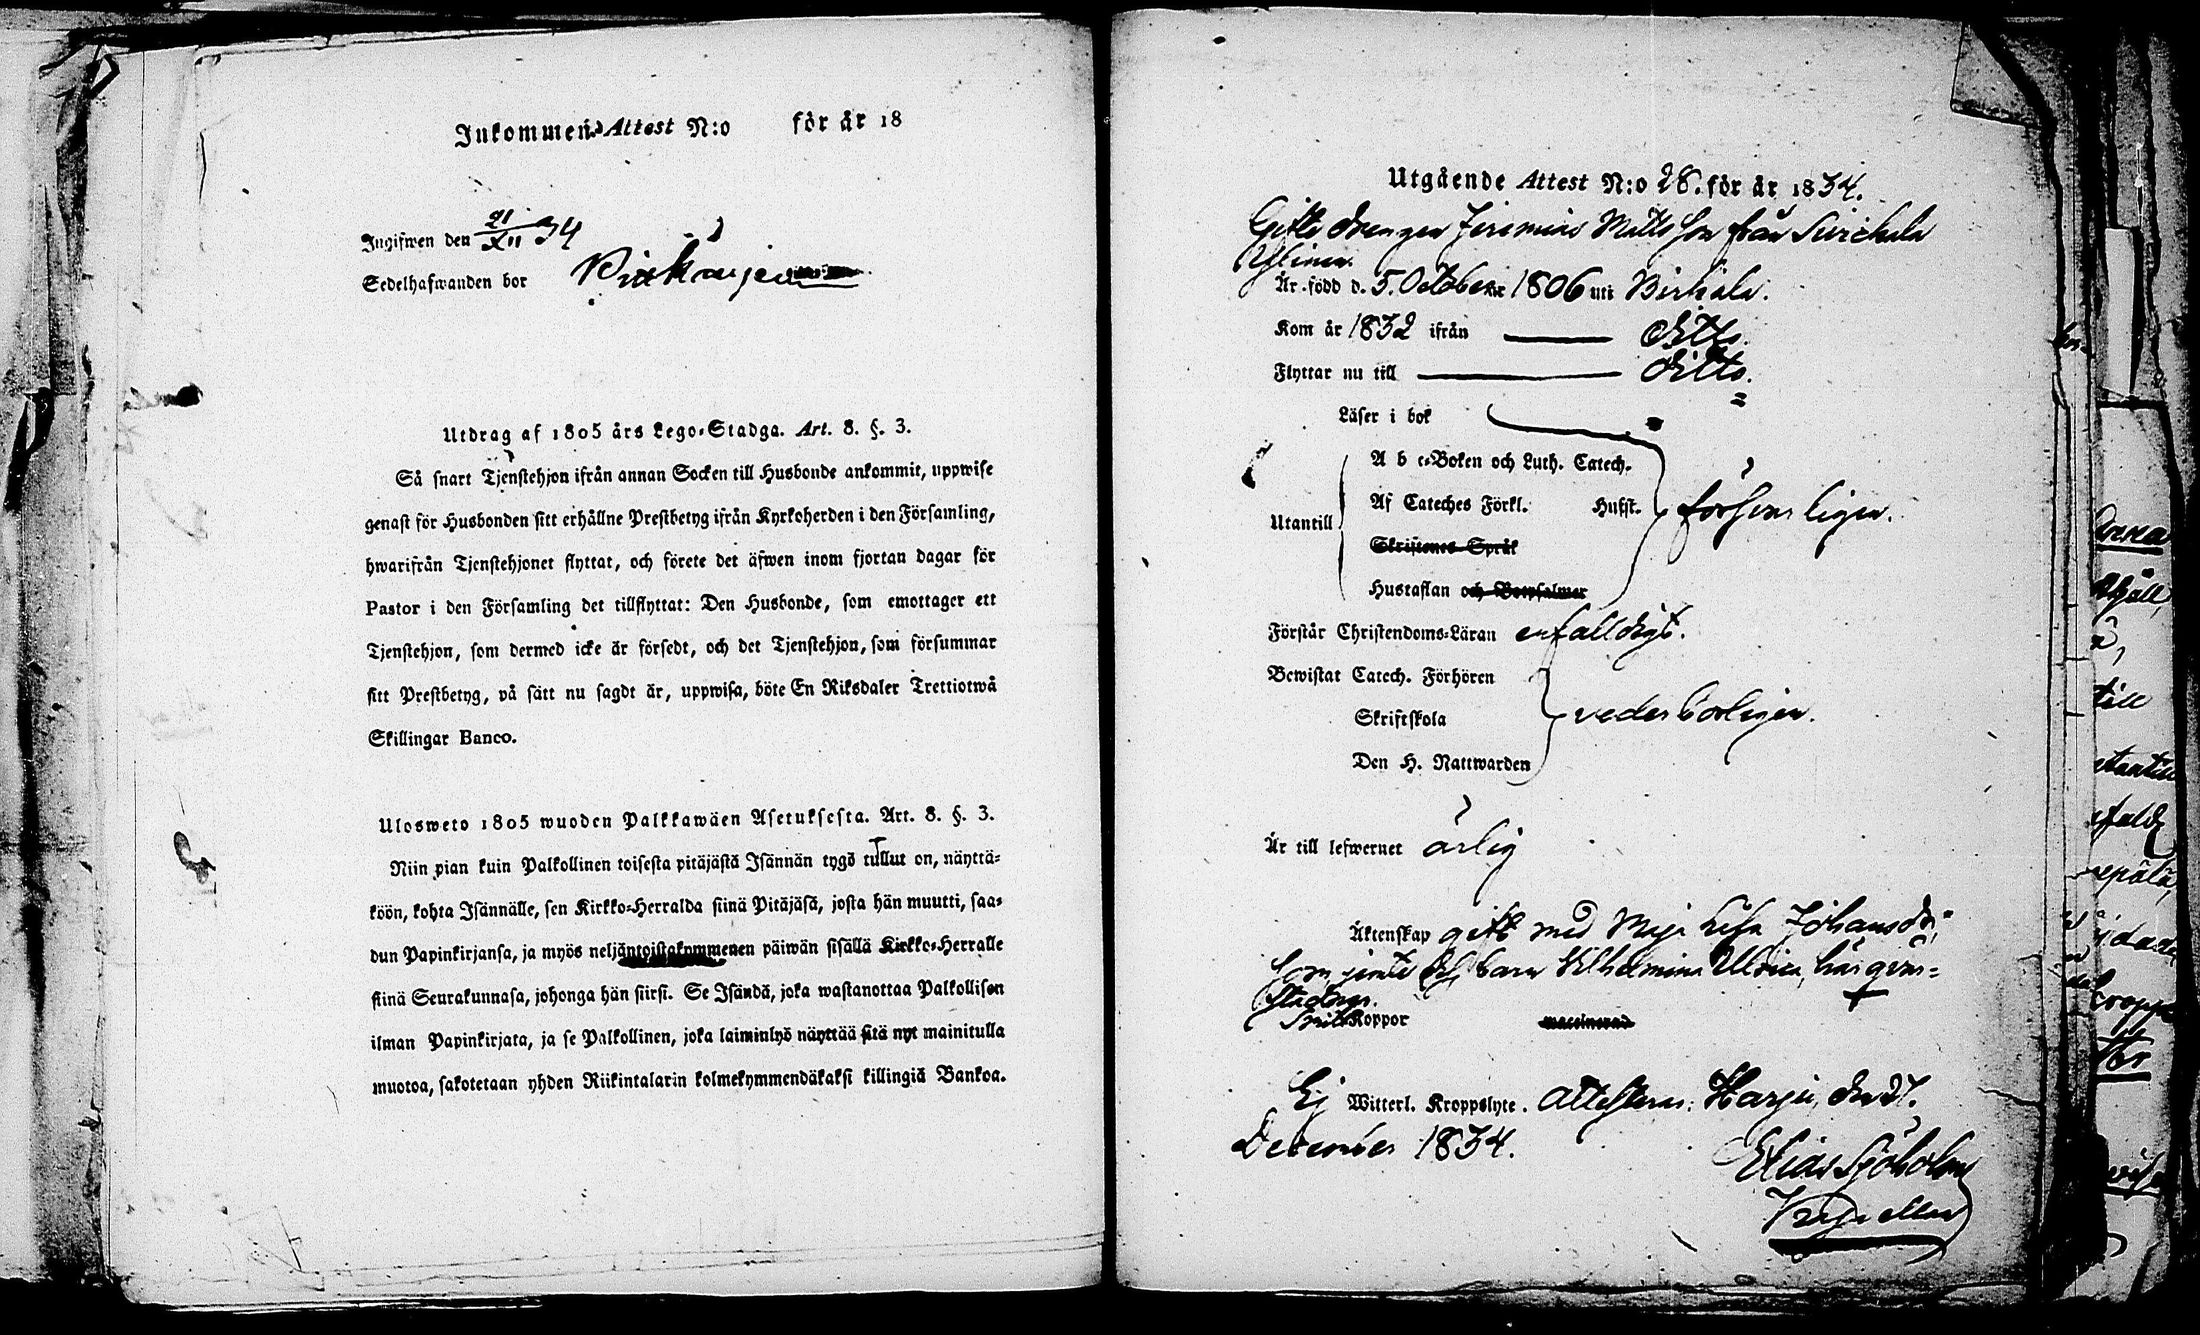 Inkommen Attest N:o för år 18
Ingifwen den 21/XII 34
Sedelhafwanden bor
Utdrag af 1805 års Lego-Stadga. Art. 8. §. 3.
Så snart Tjenstehjon ifrån annan Socken till Husbonde ankommit, uppwise
genast för Husbonden sitt erhållne Prestbetyg ifrån Kyrkoherden i den Församling,
hwarifrån Tjenstehjonet flyttat, och förete det äfwen inom fjortan dagar för
Pastor i den Församling det tillflyttat: Den Husbonde, som emottager ett
Tjenstehjon, som dermed icke är försedt, och det Tjenstehjon, som försummar
sitt Prestbetyg, på sätt nu sagdt är, uppwisa, böte En Riksdaler Trettiotwå
Skillingar Banco.
Ulosweto 1805 wuoden Palkkawäen Asetuksesta. Art. 8. §. 3.
Niin pian kuin Palkollinen toisesta pitäjästä Isännän tygö tullut on, näyttä-
köön, kohta Isännälle, sen Kirkko-Herralda siinä Pitäjäsä, josta hän muutti, saa-
dun Papinkirjansa, ja myös neljäntoistakymmenen päiwän sisällä Kirkko-Herralle
siinä Seurakunnasa, johonga hän siirsi. Se Isändä, joka wastanottaa Palkollisen
ilman Papinkirjata, ja se Palkollinen, joka laiminlyö näyttää sitä nyt mainitulla
muotoa, sakotetaan yhden Riikintalarin kolmekymmendäkaksi killingiä Bankoa.
Utgående Attest N:o 28. för år 1834.
Gifte drengen Jeremias Matts son från Siirikala
Yliner
Är född d. 5. October 1806 uti Birkala.
Kom år 1832 ifrån ditto.
Flyttar nu till ditto.
Läser i bok
A b c-Boken och Luth. Catech.
Utantill Af Cateches Förkl. Husst. försvarligen.
Skriftenes Språk
Hustaflan och Botpsalmer
Förstår Christendoms-Läran enfalldigt.
Bewistat Catech. Förhören
Skriftskola vederbörligen.
Den H. Nattwarden
Är till lefwernet ärlig
Äktenskap gift med Maja Lisa Johansdr;
som jemte barn Vilhelmina Ulrica, här qvar-
stadnar.
Koppor vaccinerad
Ej Witterl. Kroppslyte. Attesterar: Harju, den 21.
December 1834.
Elias Sjöholm